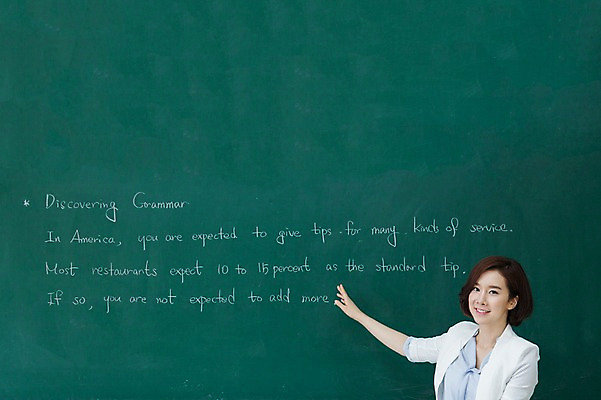 * Discovering Grammar
In America, you are expected to give tips for many kinds of service.
Most restaurants expect 10 to 15 percent as the standard tip.
If so, you are not expected to add more.